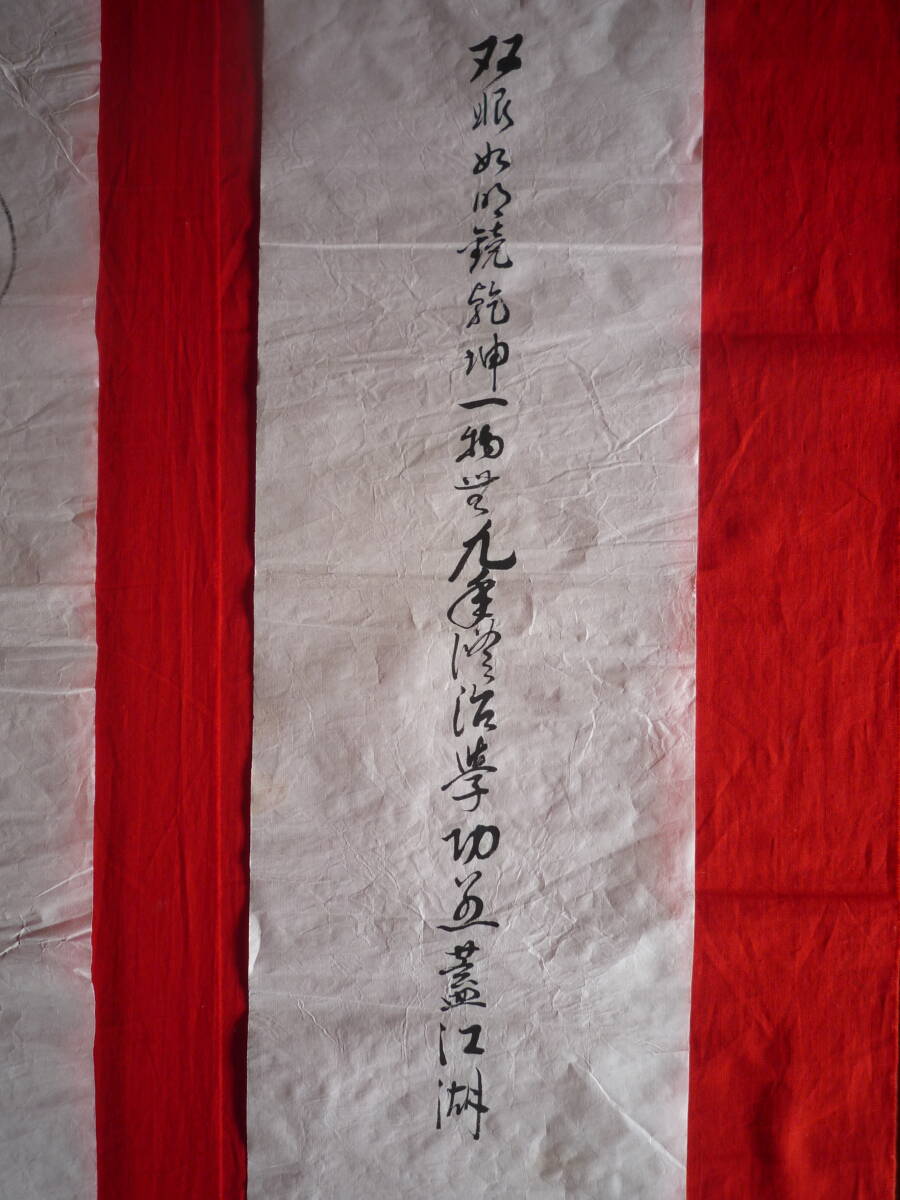 双眼如明鏡乾坤一物無九年深治學功並蓋江湖